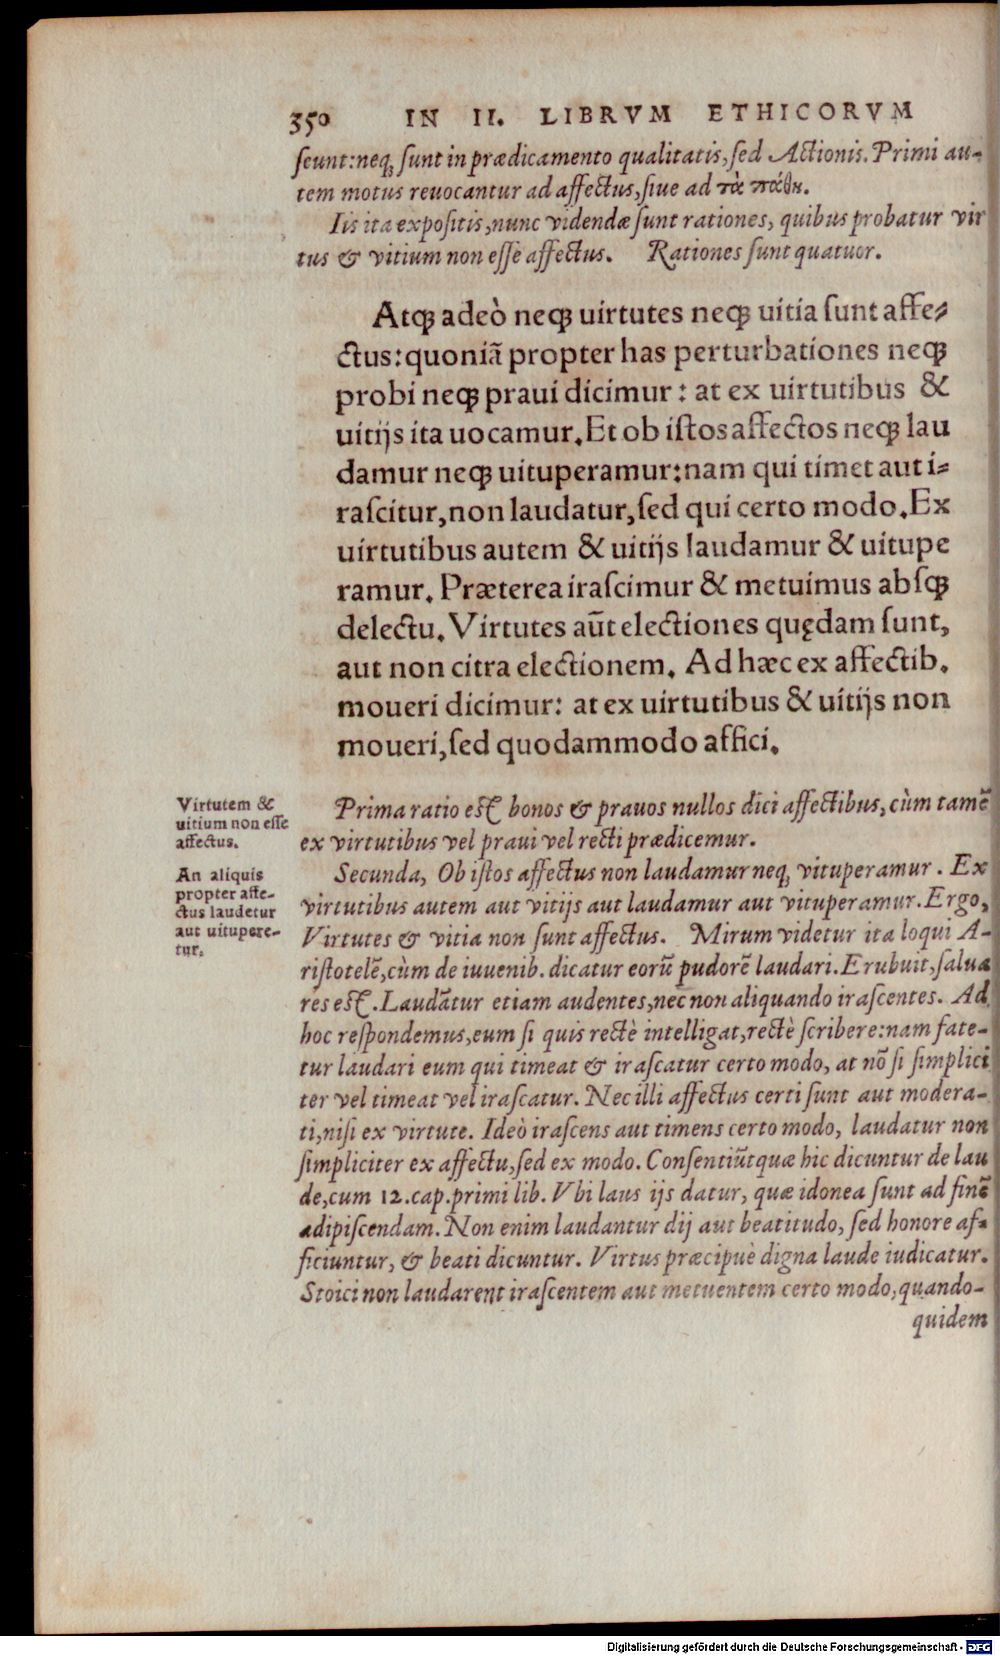 350 IN II. LIBRVM ETHICORVM
ſcunt: neq; ſunt in prædicamento qualitatis, ſed Actionis. Primi au-
tem motus reuocantur ad affectus, ſiue ad τὰ πάθη.
Iis ita expoſitis, nunc videndæ ſunt rationes, quibus probatur vir
tus & vitium non eſſe affectus. Rationes ſunt quatuor.
Atq; adeò neq; uirtutes neq; uitia ſunt affe-
ctus: quoniā propter has perturbationes neq;
probi neq; praui dicimur: at ex uirtutibus &
uitijs ita uocamur. Et ob iſtos affectos neq; lau
damur neq; uituperamur: nam qui timet aut i-
raſcitur, non laudatur, ſed qui certo modo. Ex
uirtutibus autem & uitijs laudamur & uitupe
ramur. Præterea iraſcimur & metuimus abſq;
delectu. Virtutes aūt electiones quędam ſunt,
aut non citra electionem. Ad hæc ex affectib.
moueri dicimur: at ex uirtutibus & uitijs non
moueri, ſed quodammodo affici.
Virtutem &
uitium non eſſe
affectus.
Prima ratio eſt, bonos & prauos nullos dici affectibus, cùm tamē
ex virtutibus vel praui vel recti prædicemur.
An aliquis
propter affe-
ctus laudetur
aut uitupere-
tur.
Secunda, Ob iſtos affectus non laudamur neq; vituperamur. Ex
virtutibus autem aut vitijs aut laudamur aut vituperamur. Ergo,
Virtutes & vitia non ſunt affectus. Mirum videtur ita loqui A-
riſtotelē, cùm de iuuenib. dicatur eorū pudorē laudari. Erubuit, ſalua
res eſt. Laudātur etiam audentes, nec non aliquando iraſcentes. Ad
hoc reſpondemus, eum ſi quis rectè intelligat, rectè ſcribere: nam fate-
tur laudari eum qui timeat & iraſcatur certo modo, at nō ſi ſimplici
ter vel timeat vel iraſcatur. Nec illi affectus certi ſunt aut modera-
ti, niſi ex virtute. Ideò iraſcens aut timens certo modo, laudatur non
ſimpliciter ex affectu, ſed ex modo. Conſentiūt quæ hic dicuntur de lau
de, cum 12. cap. primi lib. Vbi laus ijs datur, quæ idonea ſunt ad finē
adipiſcendam. Non enim laudantur dij aut beatitudo, ſed honore af-
ficiuntur, & beati dicuntur. Virtus præcipuè digna laude iudicatur.
Stoici non laudarent iraſcentem aut metuentem certo modo, quando-
quidem
Digitalisierung gefördert durch die Deutsche Forschungsgemeinschaft - DFG